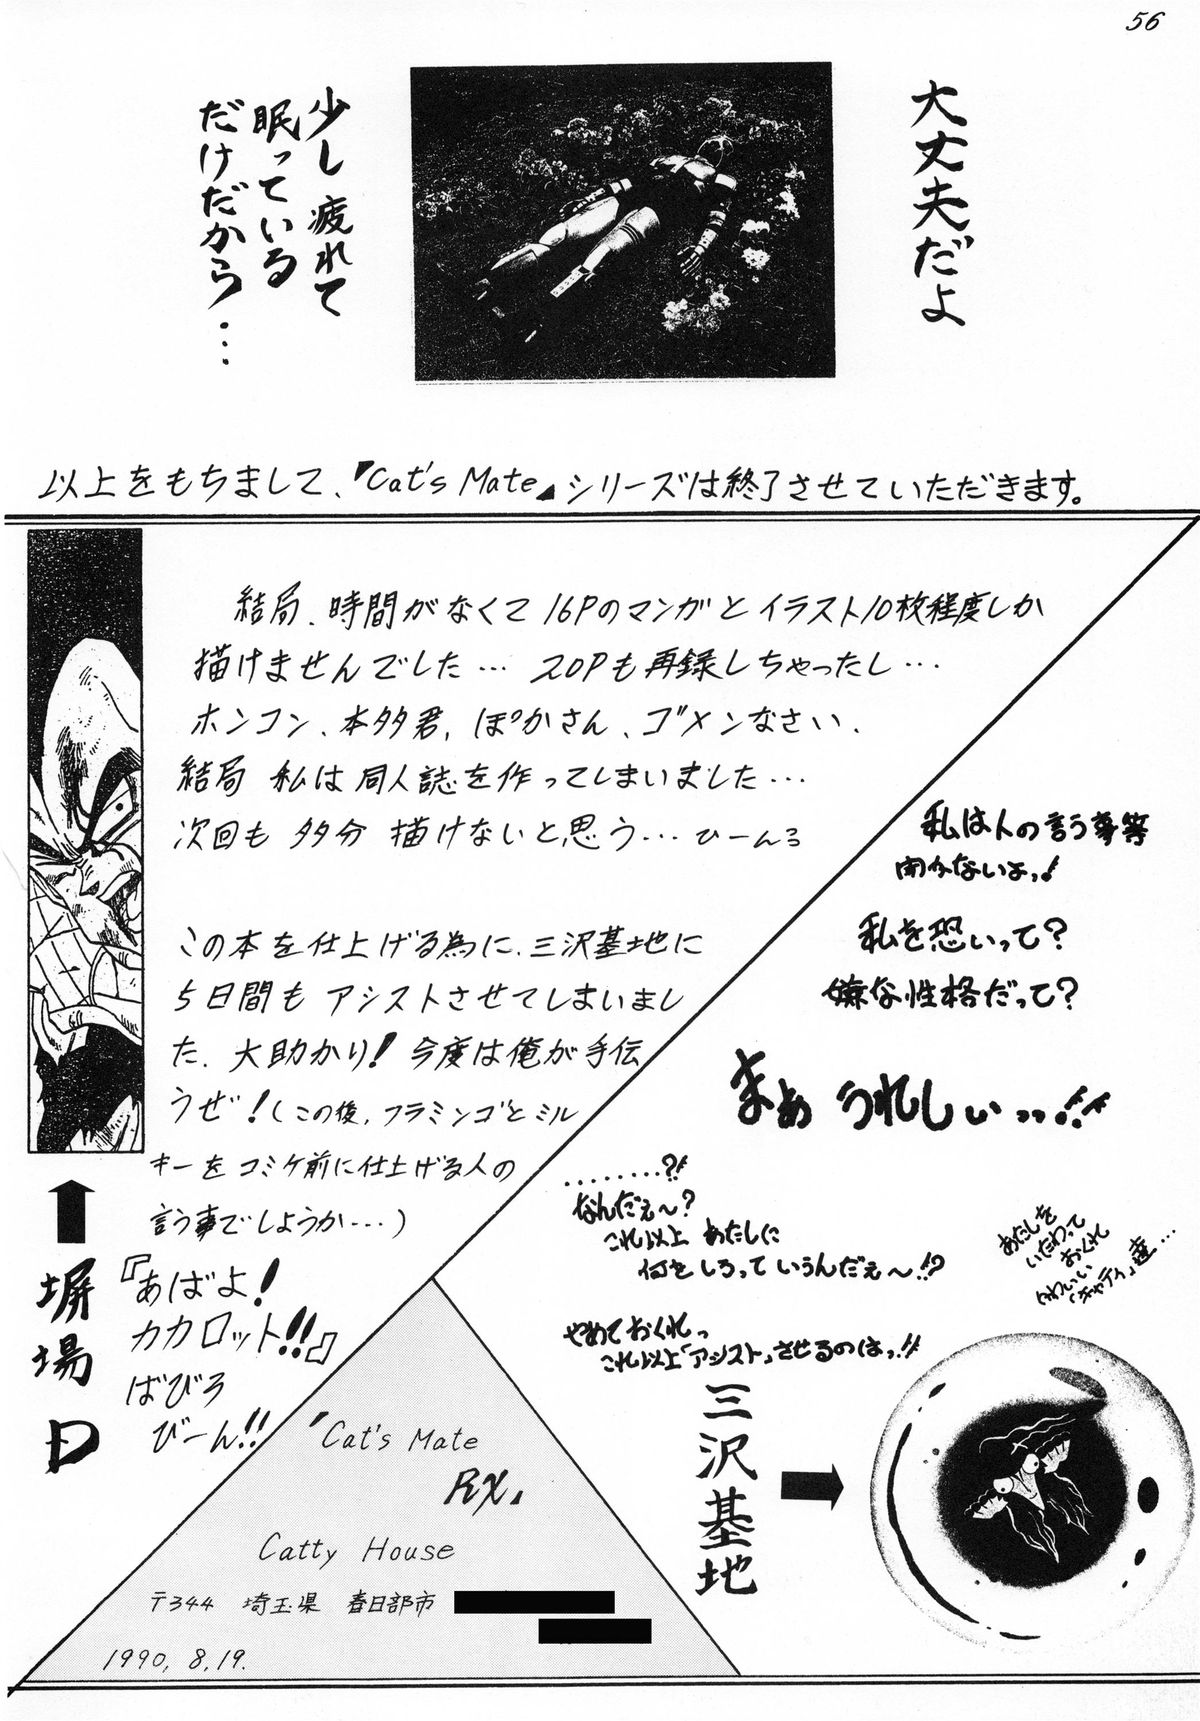 56
大丈夫だよ
少し疲れて
眠っている
だけだから・・・
以上をもちまして、『Cat's Mate』シリーズは終了させていただきます。
結局、時間がなくて16Pのマンガとイラスト10枚程度しか
描けませんでした… 20Pも再録しちゃったし…
ホンコン、本多君、ぽかさん、ゴメンなさい、
結局 私は同人誌を作ってしまいました…
次回も 多分 描けないと思う… ひーんろ
この本を仕上げる為に、三沢基地に
5日間もアシストさせてしまいまし
た、大助かり！今度は俺が手伝
うぜ！（この後、フラミンゴとミル
キーをコミケ前に仕上げる人の
言う事でしょうか…）
『あばよ！
カカロット!!』
ばびろ
びーん!!
塀場D
私は人の言う事等
聞かないよっ!
私を恐いって？
嫌な性格だって？
まぁ うれしぃっっ!!
........?!
なんだぇ～？
これ以上 あたしに
何をしろって いうんだぇ～!?
あたしを
いたわって
おくれ
かわいい
「キャティ」達…
やめておくれっ
これ以上「アシスト」させるのはっ!!
三沢基地
『Cat's Mate
RX』
Catty House
〒344 埼玉県 春日部市
1990, 8, 19.